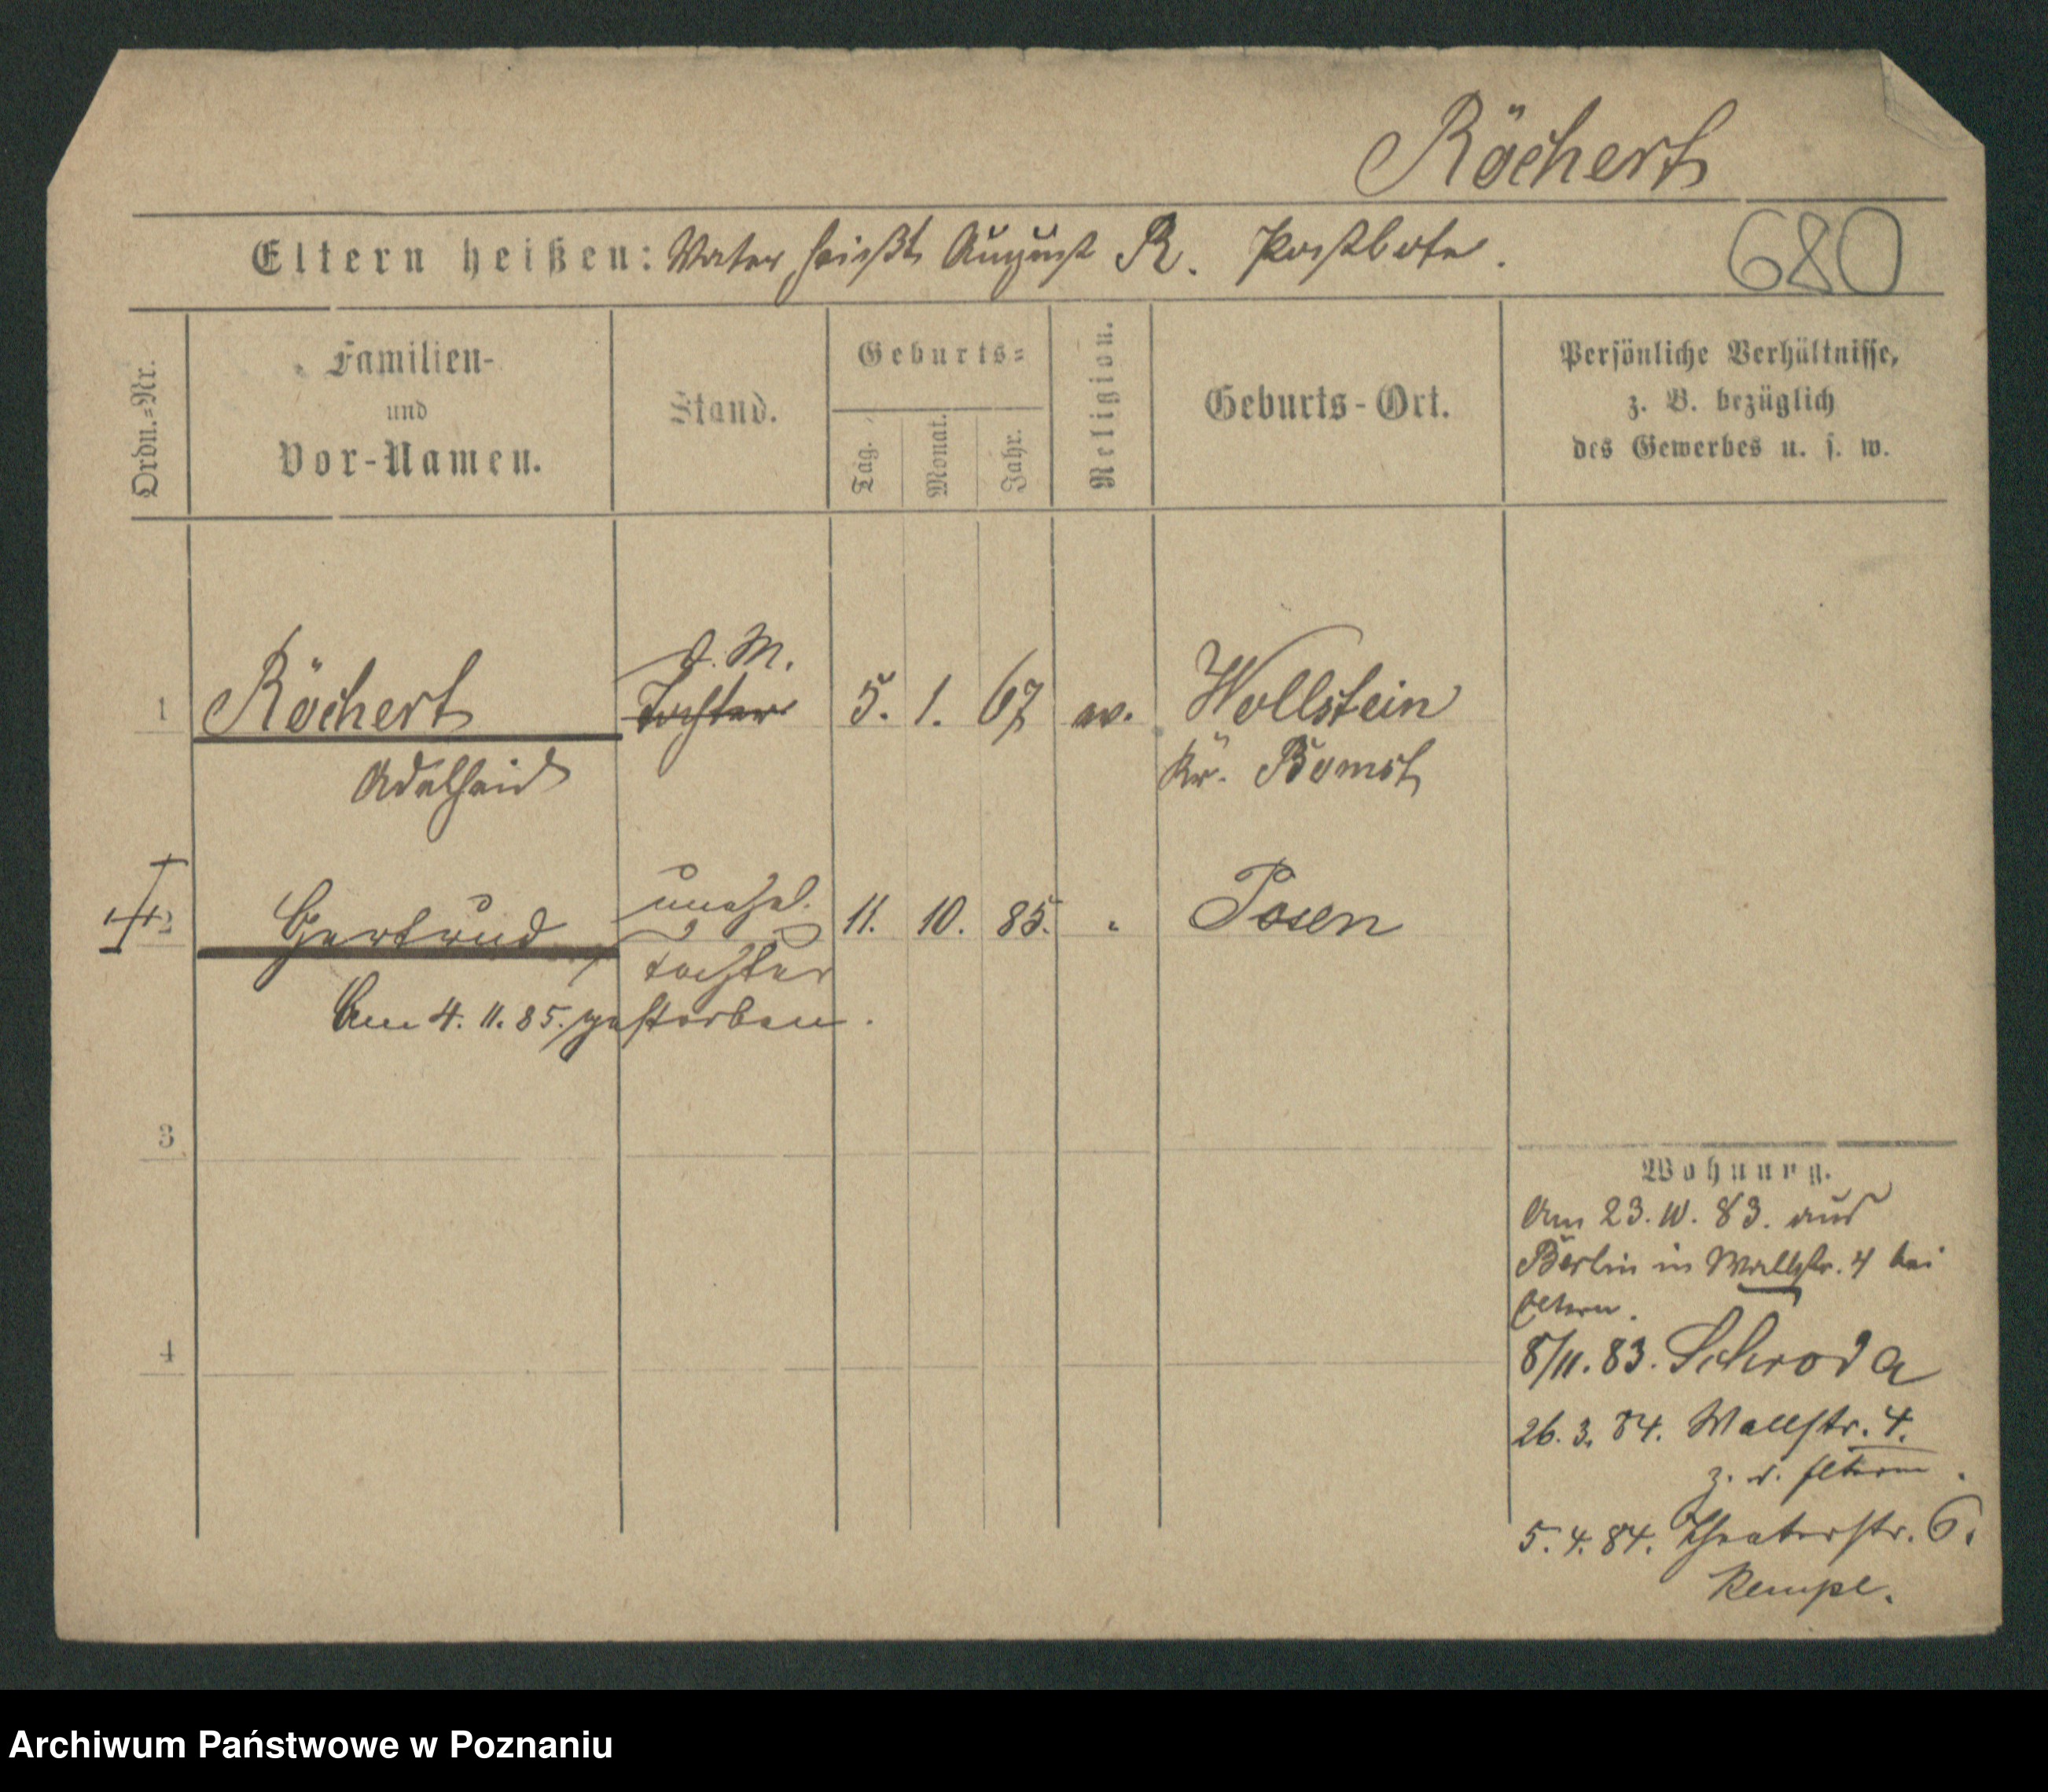 Röchert
680
Eltern heißen: Vater heißt August R. Postbote.
Ordn.=Nr.
Familien-
und
Vor-Namen.
Stand.
Geburts=
Tag.
Monat.
Jahr.
Religion.
Geburts-Ort.
Persönliche Verhältnisse,
z. B. bezüglich
des Gewerbes u. s. w.
D. M.
1 Röchert Tochter 5. 1. 67 ev. Wollstein
Adelheid Kr. Bomst
Gertrud unehel. 11. 10. 85. " Posen
Tochter
Am 4. 11. 85. gestorben.
3
4
Wohnung.
Am 23. 10. 83. aus
Berlin in Wallstr. 4 bei
Eltern.
8/11. 83. Schroda
26. 3. 84. Wallstr. 4.
z. d. Eltern.
5. 4. 84. Theaterstr. 6.
Rempe.
Archiwum Państwowe w Poznaniu